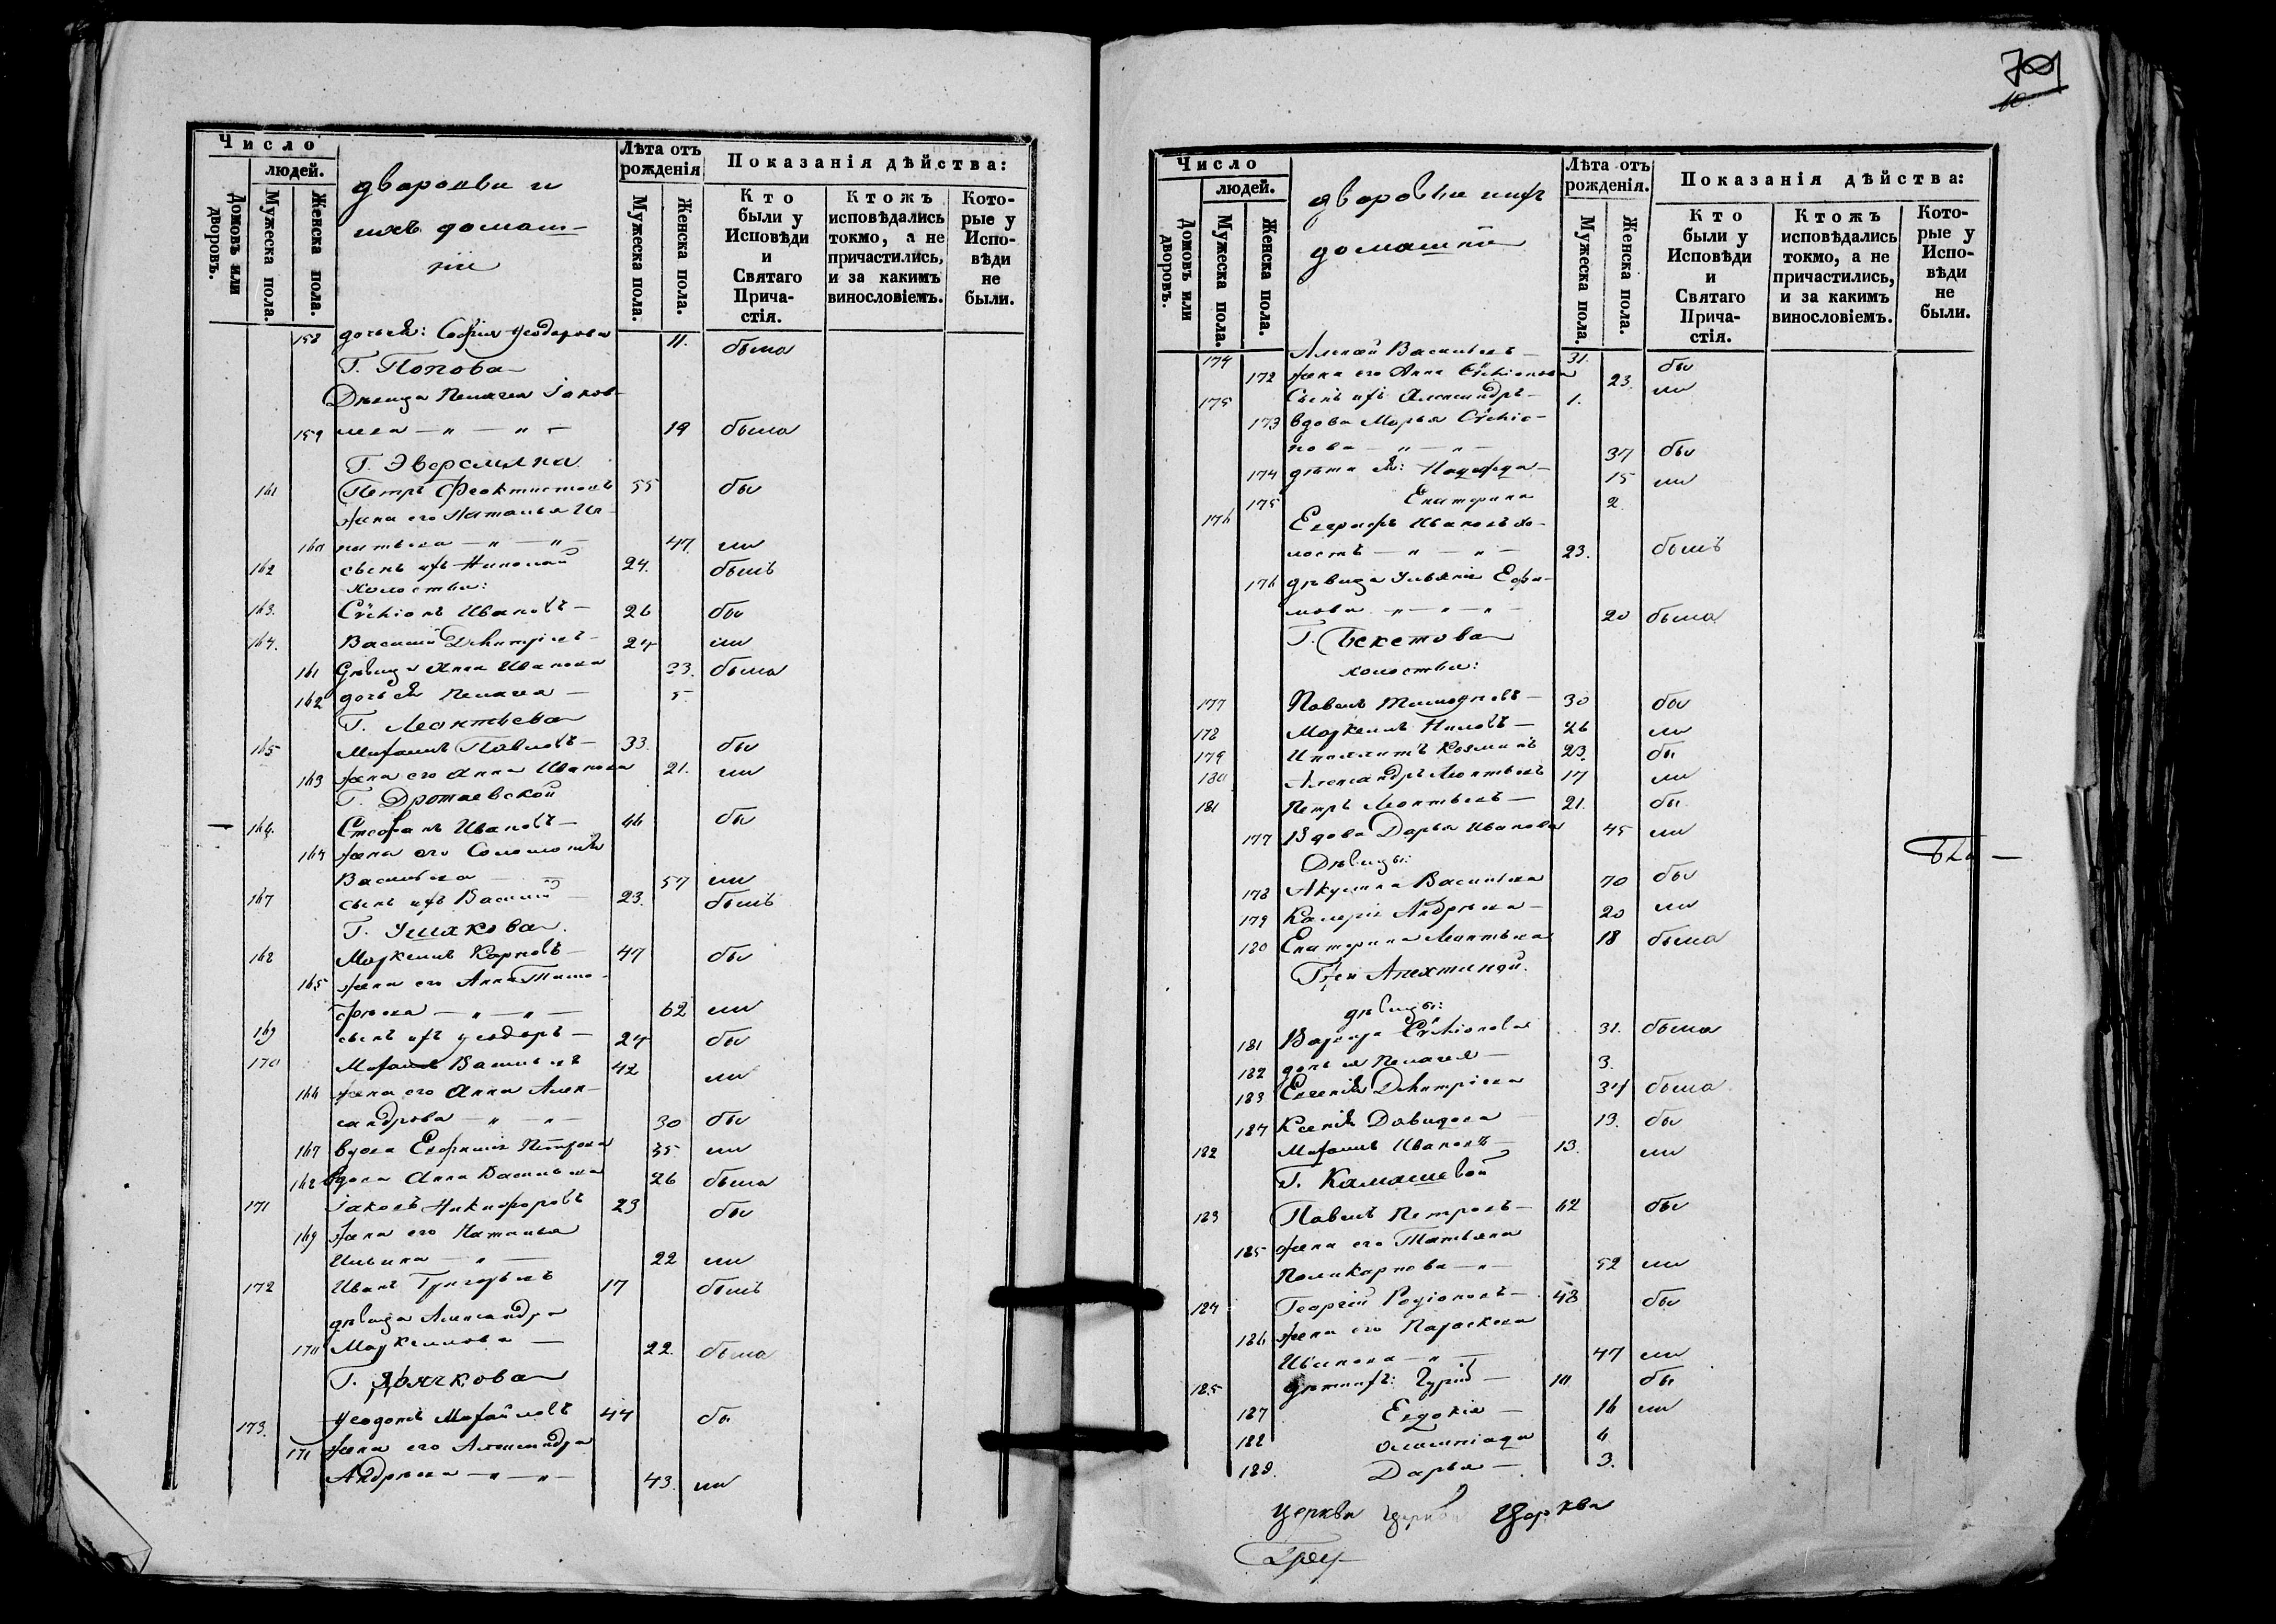 Число
людей.
Домовъ или дворовъ.
Мужеска пола.
Женска пола.
дворовыи и
ихъ домаш-
ніи
Лѣта отъ рожденія
Мужеска пола.
Женска пола.
Показанія дѣйства:
Кто были у Исповѣди и Святаго Прича-стія.
Ктожъ исповѣдались токмо, а не причастились, и за какимъ винословіемъ.
Кото-рые у Испо-вѣди не были.
158 дочь ея: Софія Ѳеодорова 11. была
Г. Попова
Дѣвица Пелагея Іаков-
159 лева — „ — „ — 19 была
Г. Эверсмана
161 Петръ Феоктистовъ 55 бы
жена его Наталья Иг-
160 натьева — „ — „ — 47. ли
162 сынъ ихъ Николай 24. былъ
холостыи:
163. Сѵмеонъ Ивановъ — 26 бы
164. Василій Димитріевъ — 24 ли
161 Дѣвица Анна Иванова 33. была
162 дочь ея Пелагея — 5
Г. Леонтьева
165 Михаилъ Павловъ — 33. бы
163 жена его Анна Иванова 21. ли
Г. Протаевской
166. Стефанъ Ивановъ — 46 бы
164 жена его Соломонія
Васильева — 57 ли
167 сынъ ихъ Василій — 23. былъ
Г. Ушакова.
168 Маркеллъ Карповъ — 47 бы
165 жена его Анна Тимо-
фѣева — „ — „ — 62 ли
169 сынъ ихъ Ѳеодоръ — 24 бы
170 Михаилъ Васильевъ 42 ли
166 жена его Анна Алек-
сандрова — „ — „ — 30 бы
167 вдова Евфимія Петрова 35. ли
168 вдова Анна Васильева 26 была
171 Іаковъ Никифоровъ 23 бы
169 жена его Наталья
Ильина — „ — 22 ли
172 Иванъ Григорьевъ 17 былъ
дѣвица Александра
170 Маркеллова — 22. была
Г. Дьячкова
173. Ѳеодоръ Михайловъ 44 бы
171 жена его Александра
Андреева — „ — „ — 43. ли
70
Число
людей.
Домовъ или дворовъ.
Мужеска пола.
Женска пола.
дворовыи ихъ
домашніи
Лѣта отъ рожденія.
Мужеска пола.
Женска пола.
Показанія дѣйства:
Кто были у Исповѣди и Святаго Прича-стія.
Ктожъ исповѣдались токмо, а не причастились, и за какимъ винословіемъ.
Кото-рые у Испо-вѣди не были.
174 Алексѣй Васильевъ — 31. бы
172 жена его Анна Сѵмеонова 23. ли
175 Сынъ ихъ Александръ — 1.
173 вдова Марья Сѵмео-
нова — „ — „ — 37 бы
174 дѣти ея: Надежда — 15 ли
175 Екатерина 2.
176 Евграфъ Ивановъ хо-
лостъ — „ — „ — 23. былъ
176 дѣвица Ульянія Ефи-
мова — „ — „ — 20 была
Г. Бекетова
холостыи:
177 Павелъ — 30 бы
178 Маркеллъ Ниловъ — 26 ли
179 Ипполитъ Козминъ 23. бы
180 Александръ Леонтьевъ 17 ли
181 Петръ Леонтьевъ — 21. бы
177 Вдова Дарья Иванова 45 ли
Дѣвицы:
178 Акулина Васильева 70 бы
179 Калерія Андрѣева — 20 ли
180 Екатерина Леонтьева 18 была
Г-жи Апехтиной.
дѣвицы:
181 Варвара Сѵмеонова 31. была
182 дочь ея Пелагея — 3.
183 Евгенія Димитріева 34 была
184 Ксенія Давидова 13. бы
182 Михаилъ Ивановъ — 13. ли
Г. Камашевой
183 Павелъ Петровъ — 62 бы
185 жена его Татьяна
Поликарпова — „ — 52 ли
184 Георгій Родіоновъ — 48 бы
186 жена его Параскева
Иванова — „ — 47 ли
185 дѣти ихъ: Гурій — 10 бы
187 Евдокія — 16 ли
188 Олимпіада 6
189. Дарья — 3.
церкви церкви Церкви